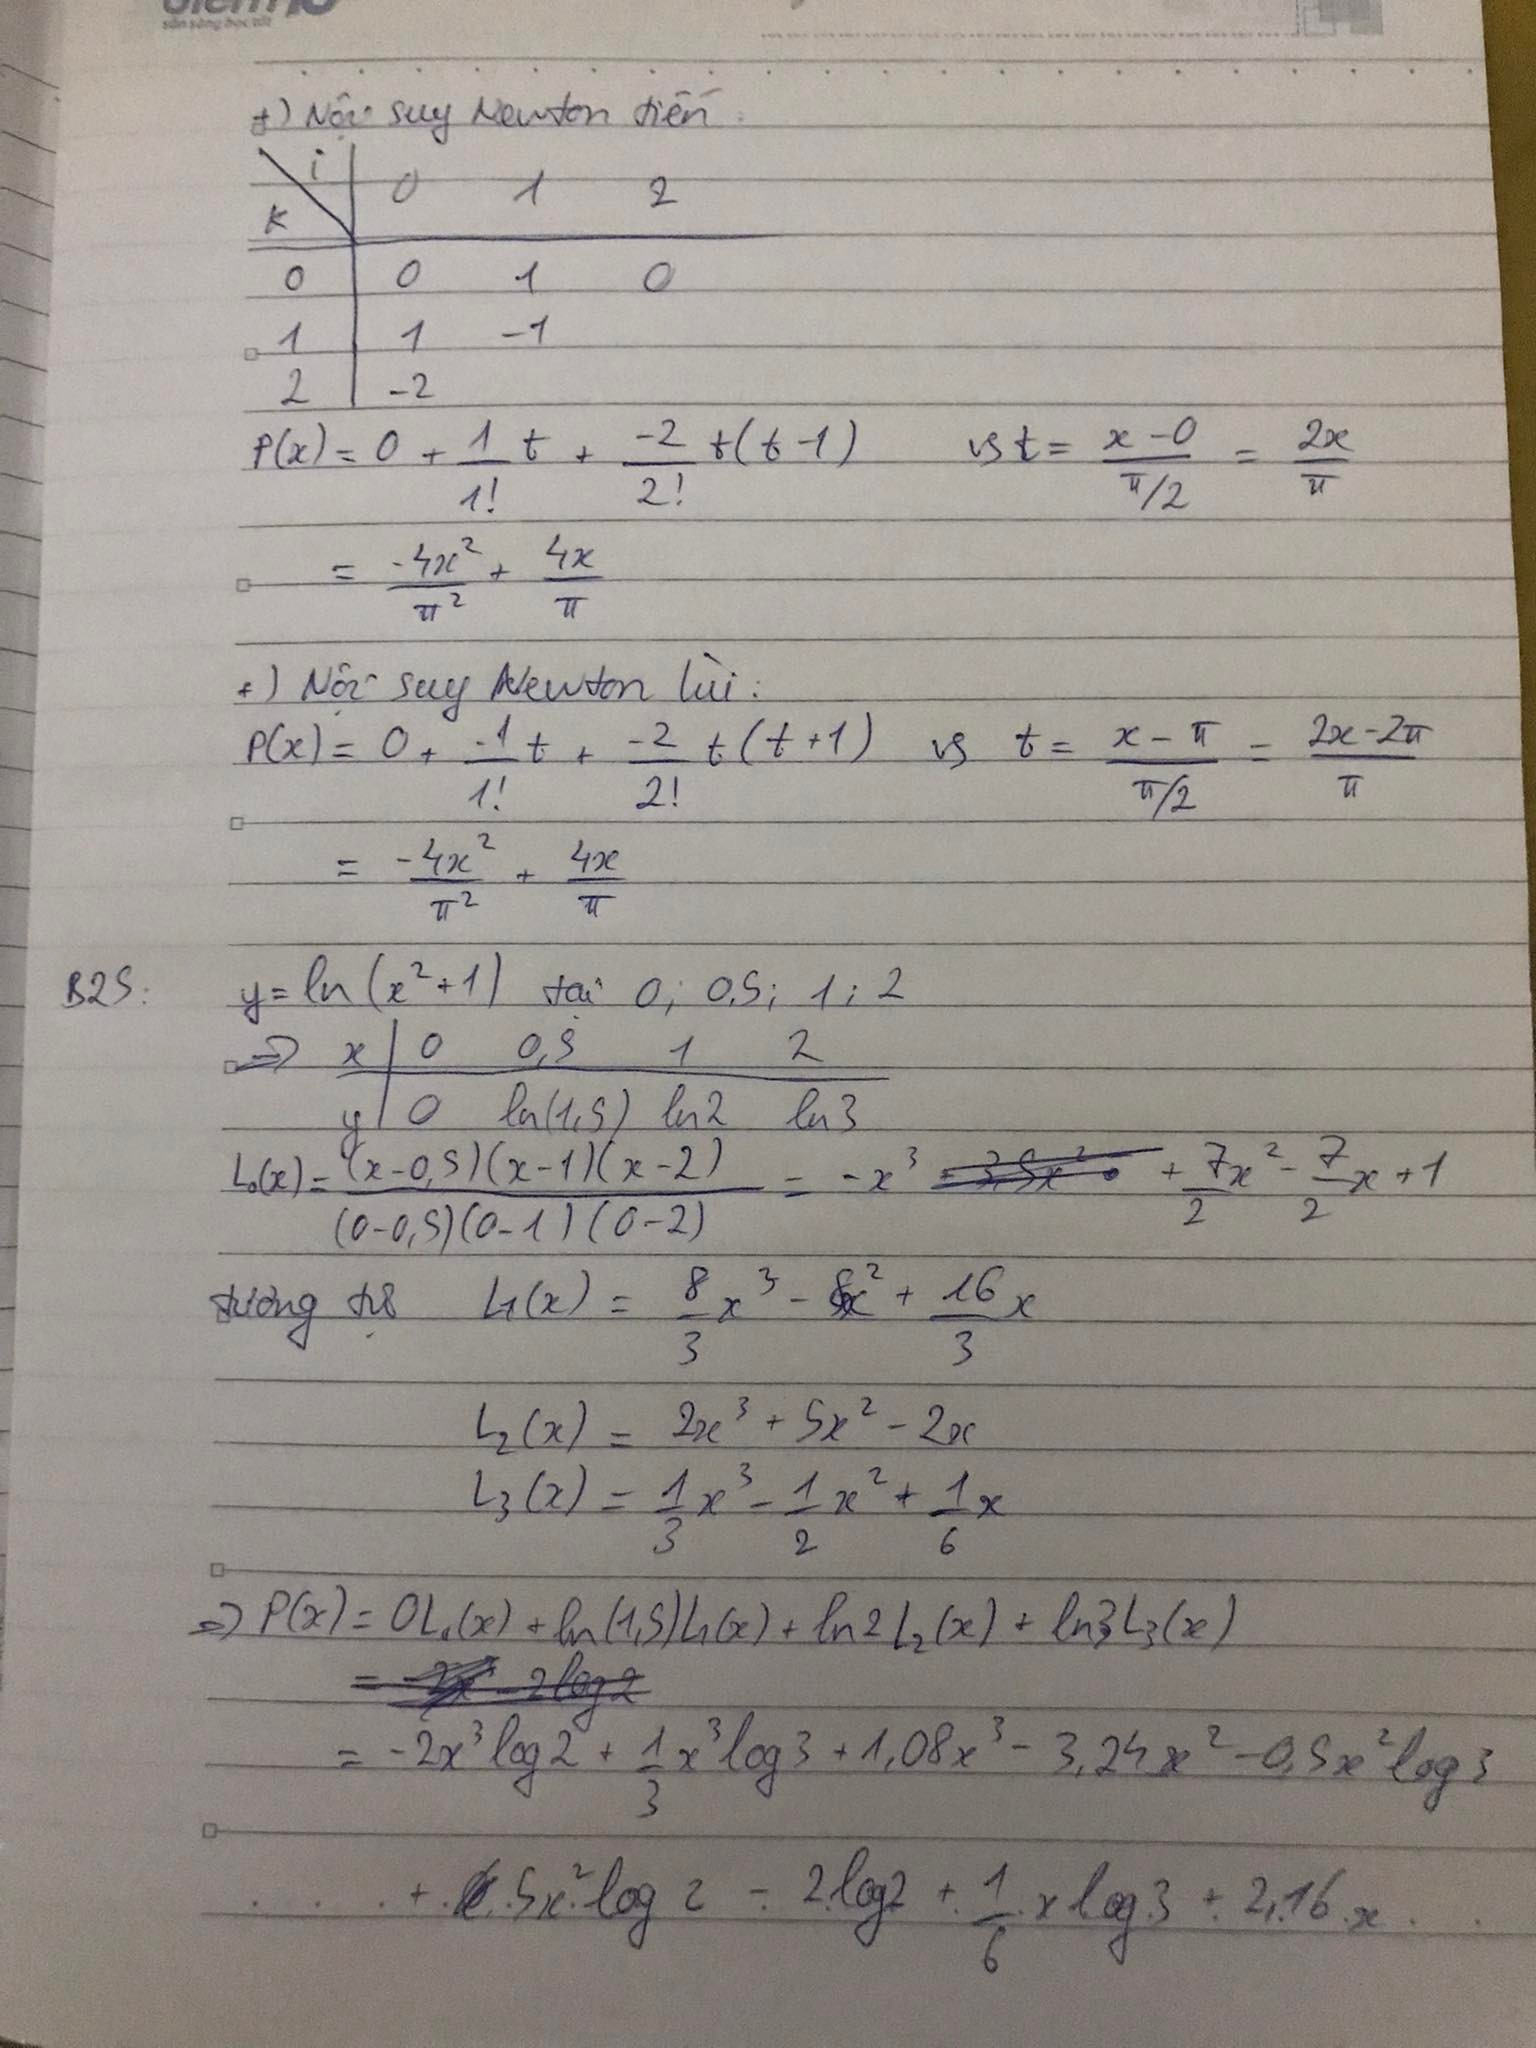 sẵn sàng học tốt
+) Nội suy Newton tiến:
i 0 1 2
K
0 0 1 0
1 1 -1
2 -2
P(x) = 0 + 1/1! t + -2/2! t(t-1) vs t = (x-0)/(π/2) = 2x/π
= -4x²/π² + 4x/π
+) Nội suy Newton lùi:
P(x) = 0 + -1/1! t + -2/2! t(t+1) vs t = (x-π)/(π/2) = (2x-2π)/π
= -4x²/π² + 4x/π
B25: y = ln(x²+1) tại 0; 0,5; 1; 2
=> x 0 0,5 1 2
y 0 ln(1,5) ln2 ln3
L₀(x) = (x-0,5)(x-1)(x-2)/(0-0,5)(0-1)(0-2) = -x³ + 7/2 x² - 7/2 x + 1
tương tự L₁(x) = 8/3 x³ - 8x² + 16/3 x
L₂(x) = 2x³ + 5x² - 2x
L₃(x) = 1/3 x³ - 1/2 x² + 1/6 x
=> P(x) = 0L₀(x) + ln(1,5)L₁(x) + ln2L₂(x) + ln3L₃(x)
= -2x³log2 + 1/3 x³log3 + 1,08x³ - 3,24x² - 0,5x²log3
+ 5x²log2 - 2log2 + 1/6 x log3 + 2,16x